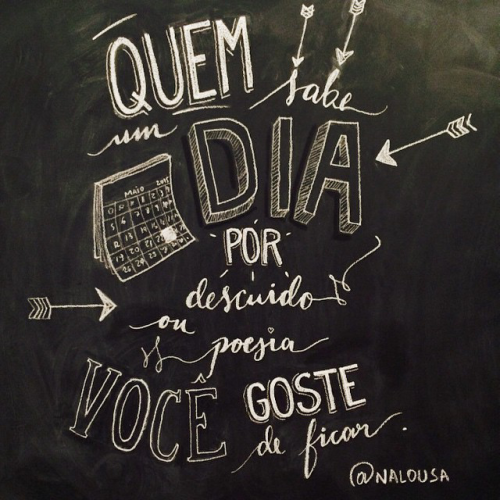 QUEM sabe
um DIA
MAIO
POR
descuido
ou
poesia
VOCÊ GOSTE
de ficar.
@NALOUSA